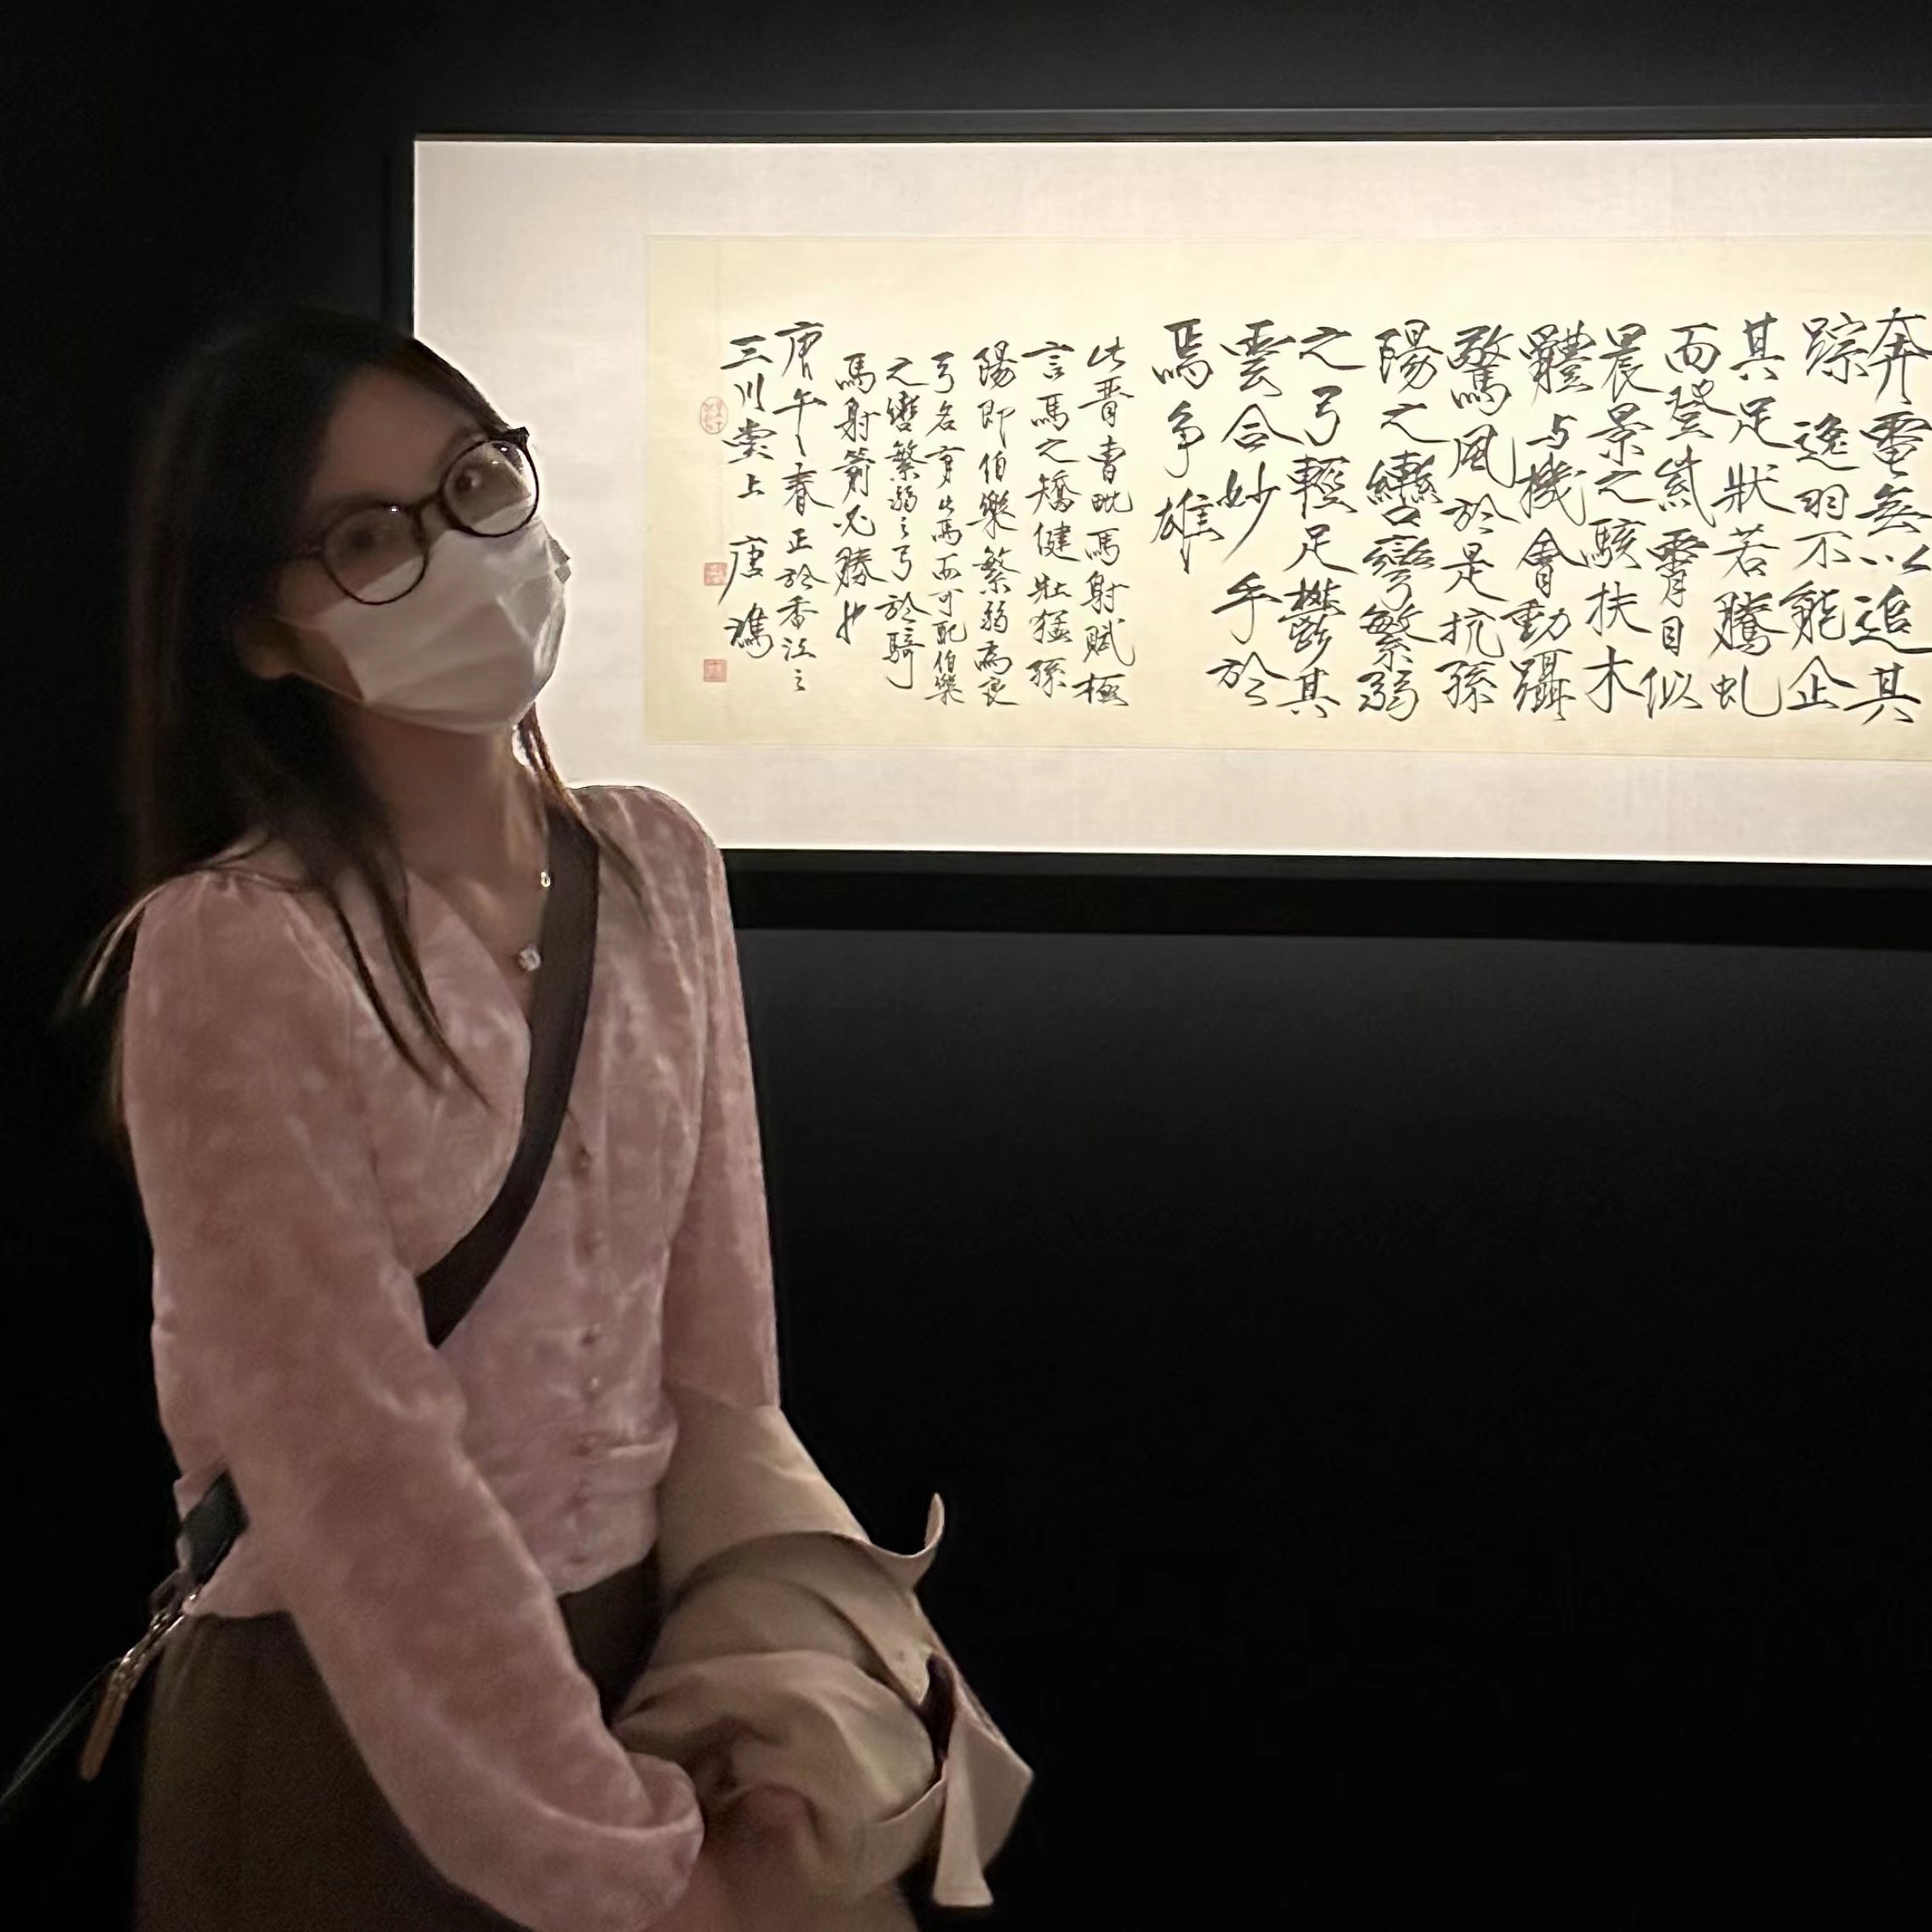 奔電無以追其
踪逸羽不能企
其足狀若騰虬
而登紫霄目似
晨景之駭扶木
體与機會動躡
驚風於是抗孫
陽之轡彎繁弱
之弓輕足鬱其
雲合妙手於
焉爭雄
此晋曹毗馬射賦極
言馬之矯健壯猛孫
陽即伯樂繁弱為良
弓名此馬而可配伯樂
之轡繁弱之弓於騎
馬射箭必勝也
庚午春正於香江之
三川上 唐鴻